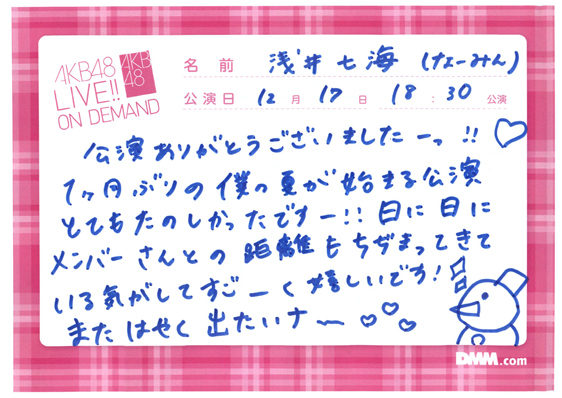 AKB48
LIVE!!
ON DEMAND
AKB
48
名前 浅井七海 (なーみん)
公演日 12月17日 18:30公演
公演ありがとうございましたーっ!!♡
1ヶ月ぶりの僕の夏が始まる公演
とてもたのしかったですー!!日に日に
メンバーさんとの距離もちぢまってきて
いる気がしてすごーく嬉しいです!
またはやく出たいナ〜♡♡♡
DMM.com